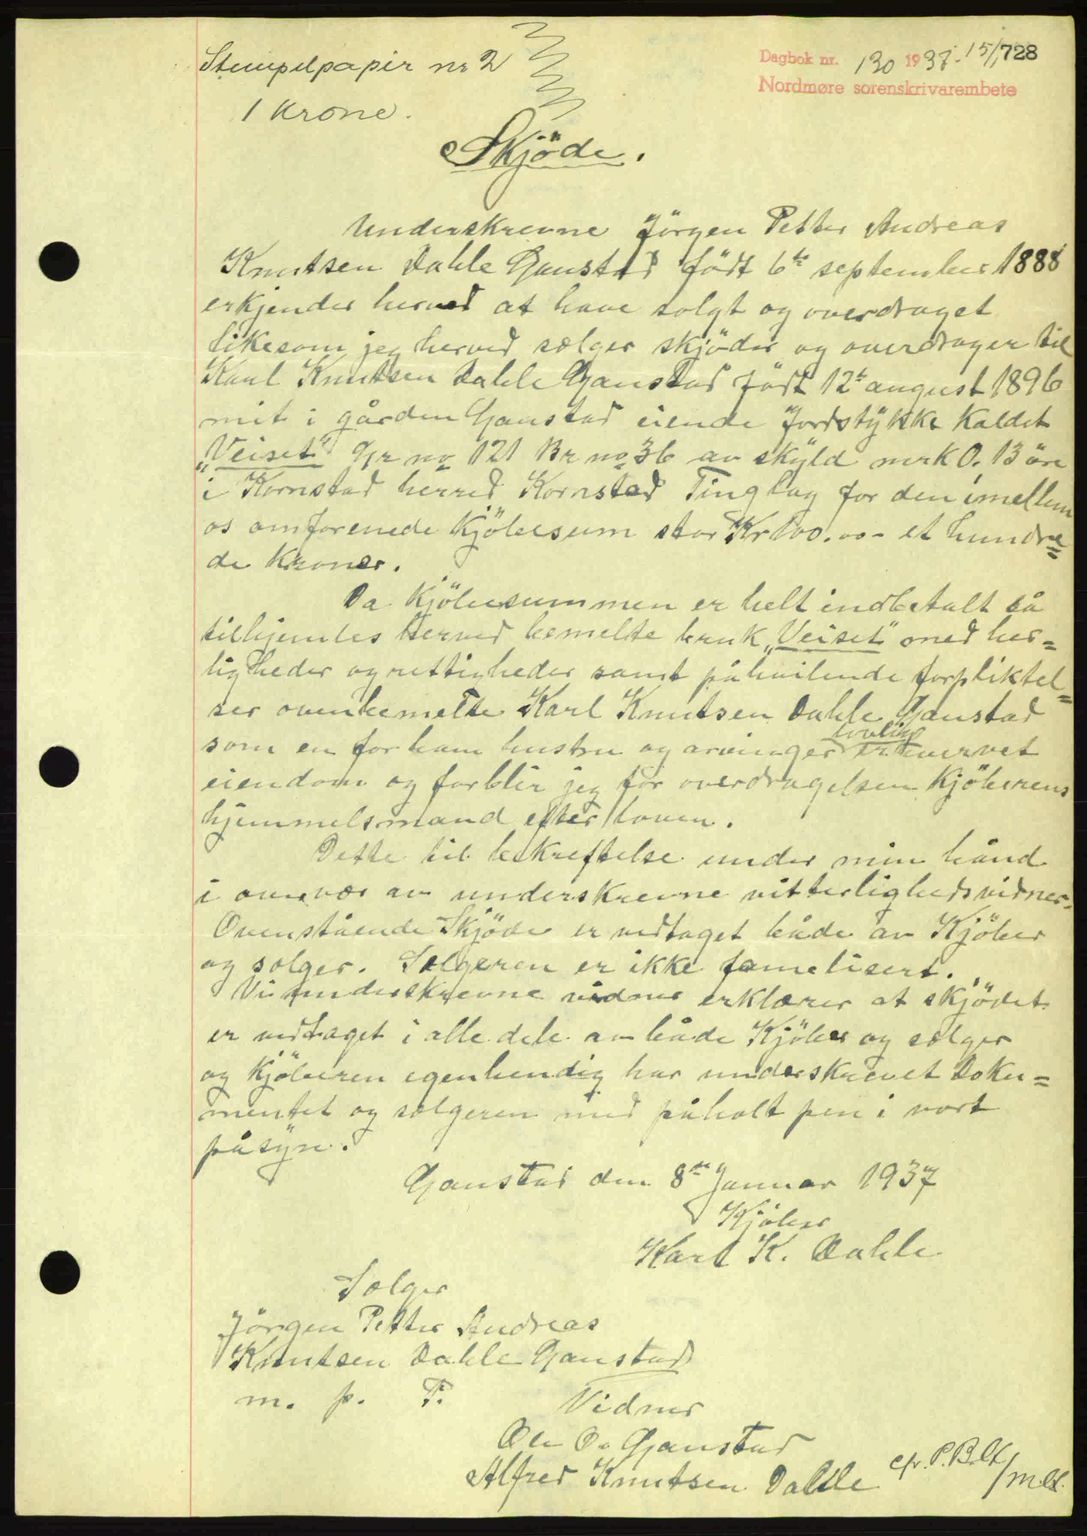 Stempelpapir nr 2
1 krone.
Dagbok nr. 130 1937 - 15/1 728
Nordmøre sorenskrivarembete
Skjöde.
Underskrevne Jörgen Petter Andreas
Knutsen Dahle Gaustad födt 6te september 1888
erkjender herved at have solgt og overdraget
likesom jeg herved sælger skjöder og overdrager til
Karl Knutsen Dahle Gaustad födt 12te august 1896
mit i gården Gaustad eiende Jordstÿkke kaldet
"Veiset" Gr no 121 Br no 36 av skÿld mrk 0.13 öre
i Kornstad herred Kornstad Tinglag for den imellem
os omforenede Kjöbesum stor Kr 100.00 - et hundre=
de kroner.
Da kjöbesummen er helt indbetalt så
tilhjemles herved bemelte bruk "Veiset" med her=
ligheder og rettigheder samt påhvilende forpliktel=
ser ovenbemelte Karl Knutsen Dahle Gaustad
som en for ham hustru og arvinger lovlig erhvervet
eiendom og forblir jeg for overdragelsen Kjöberens
hjemmelsmand efter loven.
Dette til bekreftelse under min hånd
i overvær av underskrevne vitterlighedsvidner.
Ovenstående Skjöde er vedtaget både av Kjöber
og sælger. Sælgeren er ikke familisert.
Vi underskrevne vidner erklærer at skjödet
er vedtaget i alle dele av både Kjöber og sælger
og Kjöberen egenhendig har underskrevet Doku=
mentet og sælgeren med påholt pen i vort
påsÿn.
Gaustad den 8de Januar 1937
Kjöber
Karl K. Dahle
Sælger
Jörgen Petter Andreas
Knutsen Dahle Gaustad
m. p. P.
Vidner
Ole O. Gaustad
Alfred Knutsen Dahle